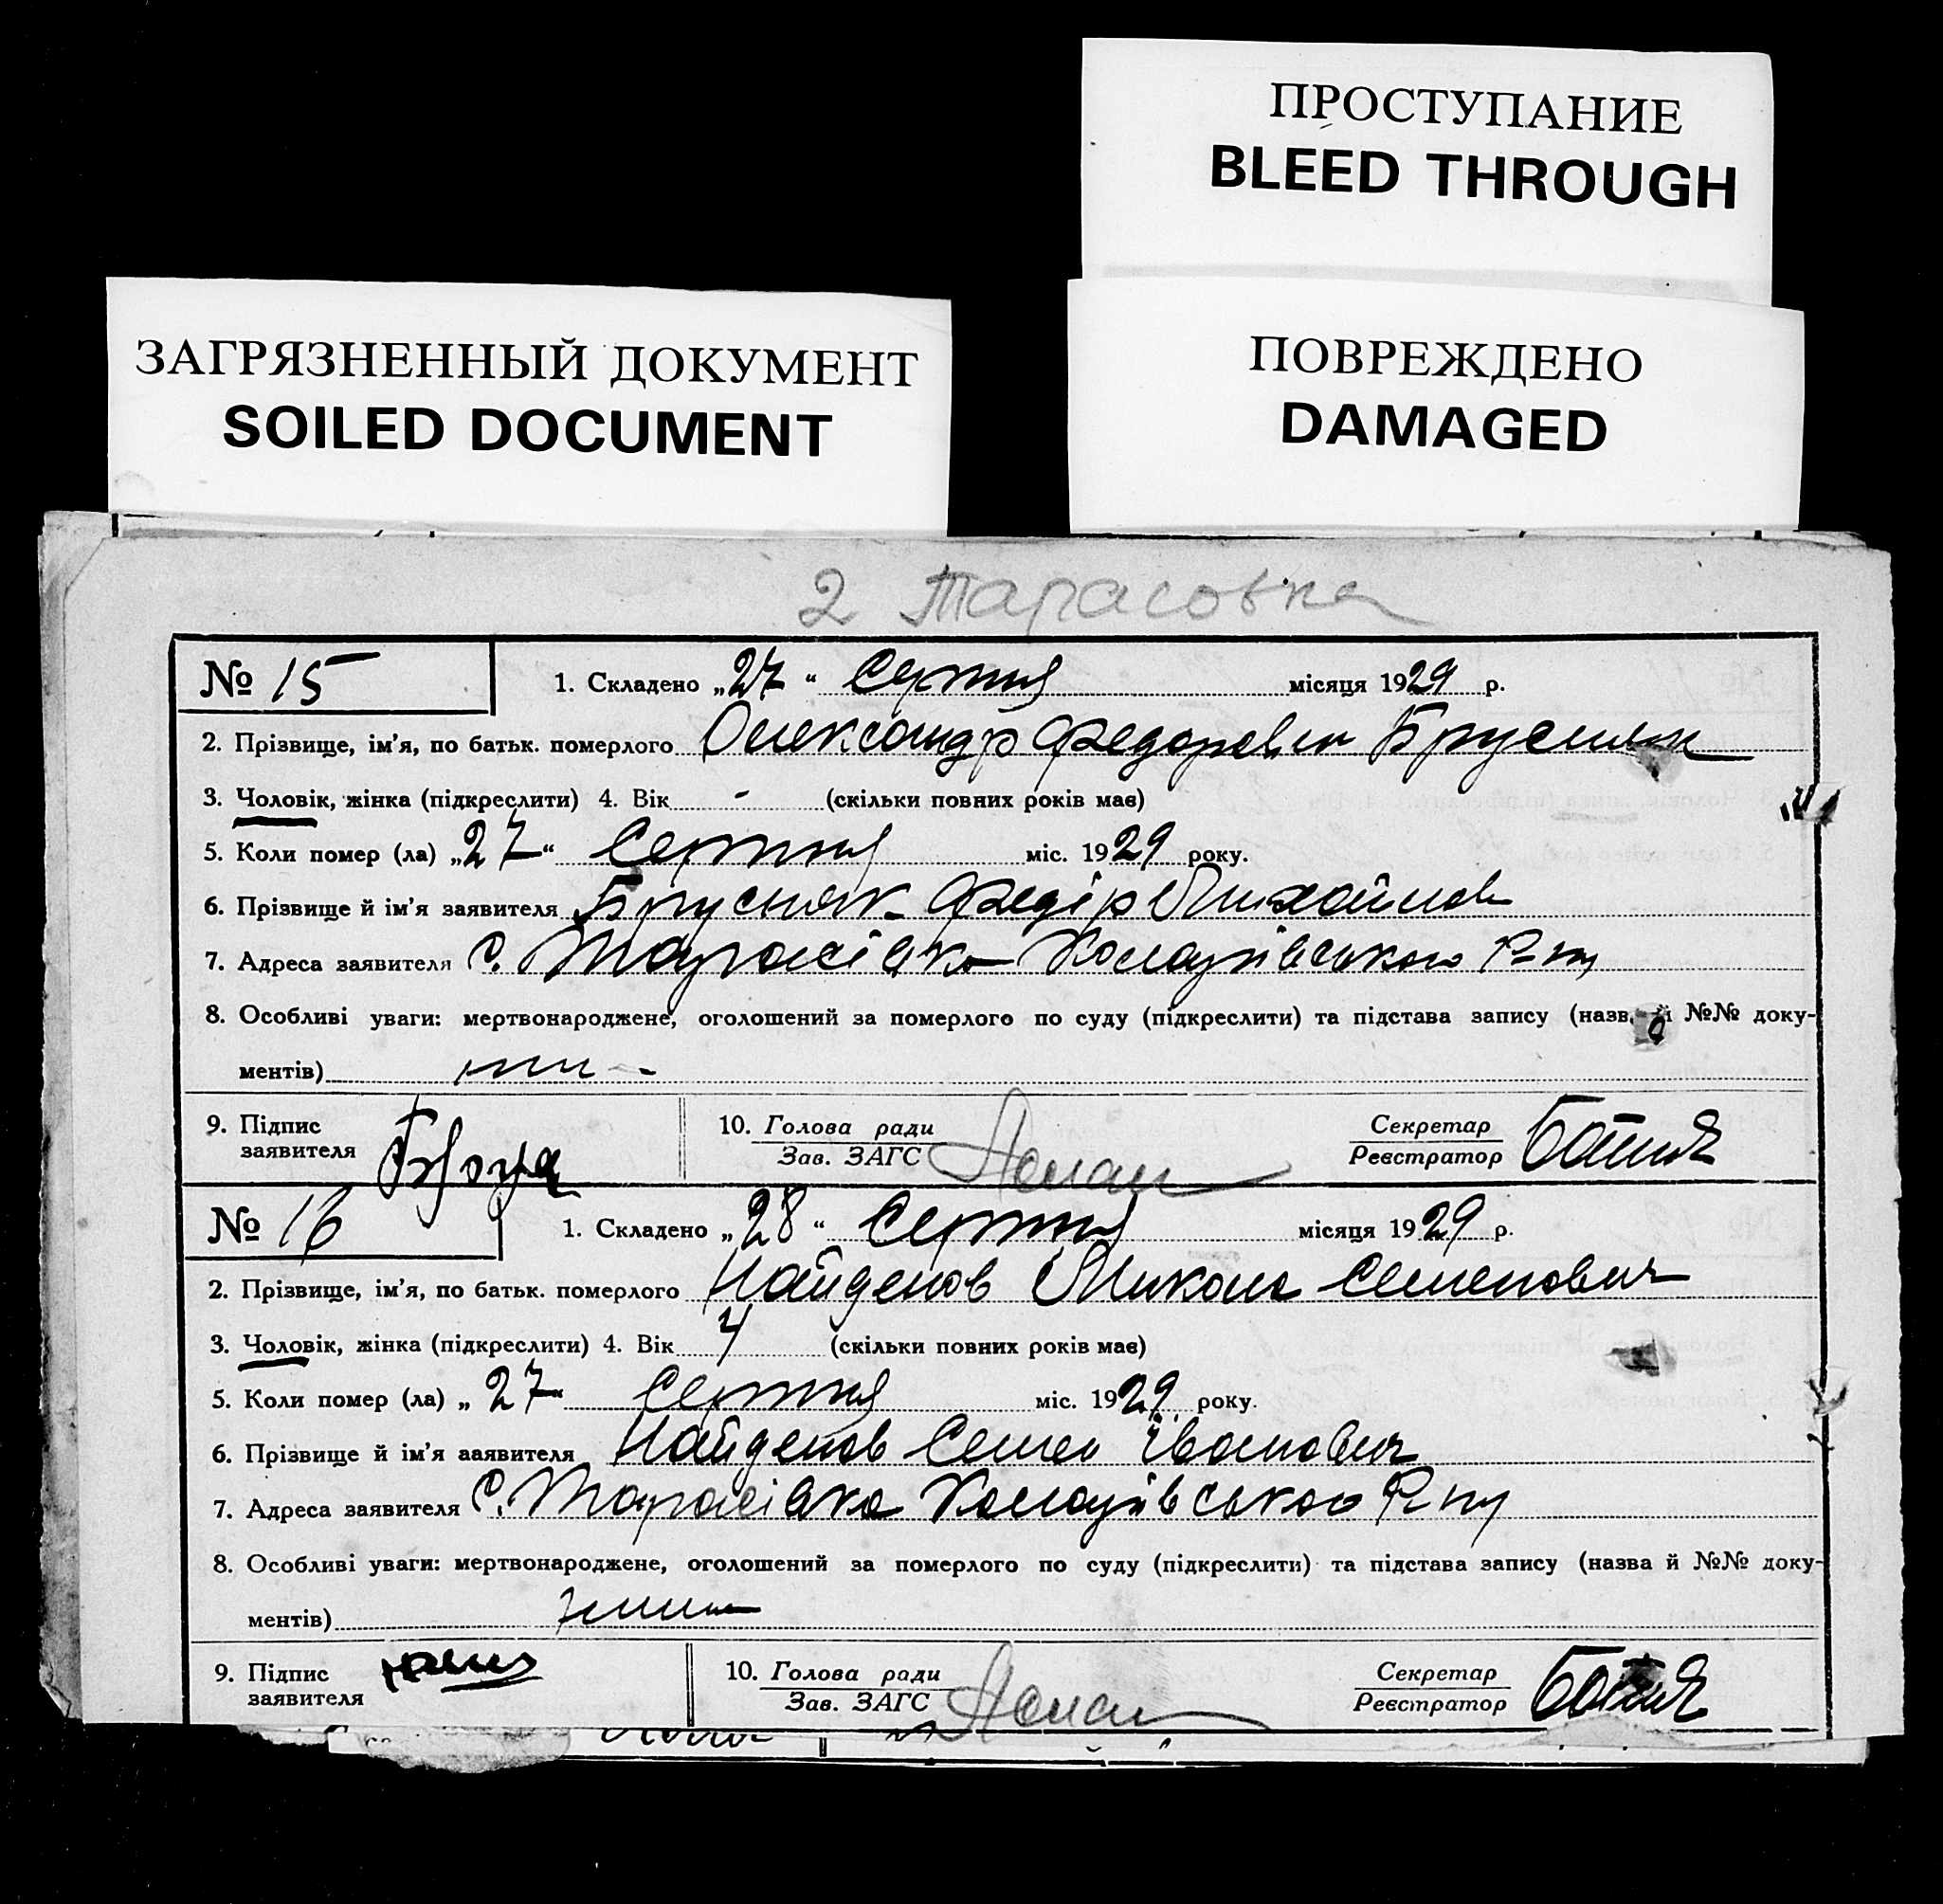 ПРОСТУПАНИЕ
BLEED THROUGH
ЗАГРЯЗНЕННЫЙ ДОКУМЕНТ
SOILED DOCUMENT
ПОВРЕЖДЕНО
DAMAGED
2 Тарасовка
№ 15 1. Складено „27“ Серпня місяця 1929 р.
2. Прізвище, ім'я, по батьк. померлого Олександр Федорович Брусняк
3. Чоловік, жінка (підкреслити) 4. Вік - (скільки повних років має)
5. Коли помер (ла) „27“ Серпня міс. 1929 року.
6. Прізвище й ім'я заявителя Брусняк Федір Михайлов
7. Адреса заявителя с. Тарасівка
8. Особливі уваги: мертвонароджене, оголошений за померлого по суду (підкреслити) та підстава запису (назва й №№ доку-
ментів)
9. Підпис заявителя 10. Голова ради Зав. ЗАГС Секретар Реєстратор
№ 16 1. Складено „28“ Серпня місяця 1929 р.
2. Прізвище, ім'я, по батьк. померлого Найденов Микола Семенович
3. Чоловік, жінка (підкреслити) 4. Вік 4 (скільки повних років має)
5. Коли помер (ла) „27“ Серпня міс. 1929 року.
6. Прізвище й ім'я заявителя Найденов Семен Іванович
7. Адреса заявителя с. Тарасівка
8. Особливі уваги: мертвонароджене, оголошений за померлого по суду (підкреслити) та підстава запису (назва й №№ доку-
ментів)
9. Підпис заявителя 10. Голова ради Зав. ЗАГС Секретар Реєстратор